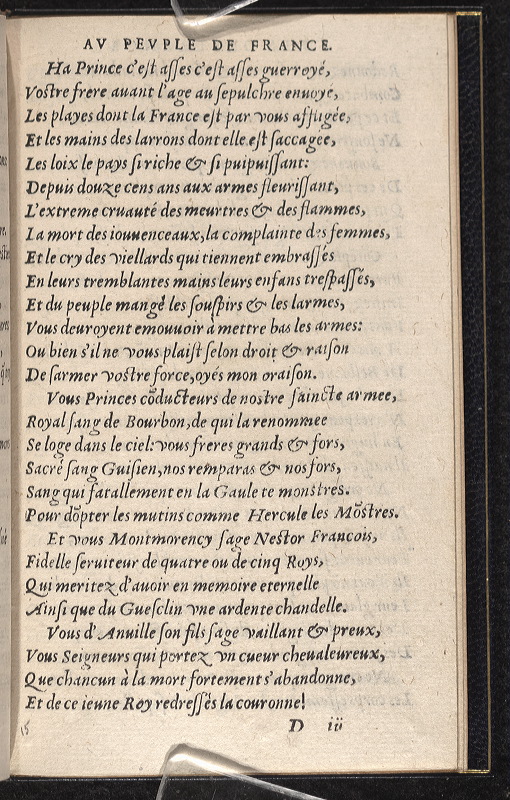 AV PEVPLE DE FRANCE.
Ha Prince c'est asses c'est asses guerroyé,
Vostre frere auant l'age au sepulchre enuoyé,
Les playes dont la France est par vous affligée,
Et les mains des larrons dont elle est saccagée,
Les loix le pays si riche & si puipuissant:
Depuis douze cens ans aux armes fleurissant,
L'extreme cruauté des meurtres & des flammes,
La mort des iouuenceaux, la complainte des femmes,
Et le cry des viellards qui tiennent embrassés
En leurs tremblantes mains leurs enfans trespassés,
Et du peuple mangé les souspirs & les larmes,
Vous deuroyent emouuoir a mettre bas les armes:
Ou bien s'il ne vous plaist selon droit & raison
Desarmer vostre force, oyés mon oraison.
Vous Princes cōducteurs de nostre saincte armee,
Royal sang de Bourbon, de qui la renommee
Se loge dans le ciel: vous freres grands & fors,
Sacré sang Guisien, nos remparas & nos fors,
Sang qui fatallement en la Gaule te monstres.
Pour dōpter les mutins comme Hercule les Mōstres.
Et vous Montmorency sage Nestor Francois,
Fidelle seruiteur de quatre ou de cinq Roys,
Qui meritez d'auoir en memoire eternelle
Ainsi que du Guesclin vne ardente chandelle.
Vous d'Anuille son fils sage vaillant & preux,
Vous Seigneurs qui portez vn cueur cheualeureux,
Que chancun à la mort fortement s'abandonne,
Et de ce ieune Roy redressés la couronne!
D iii
15